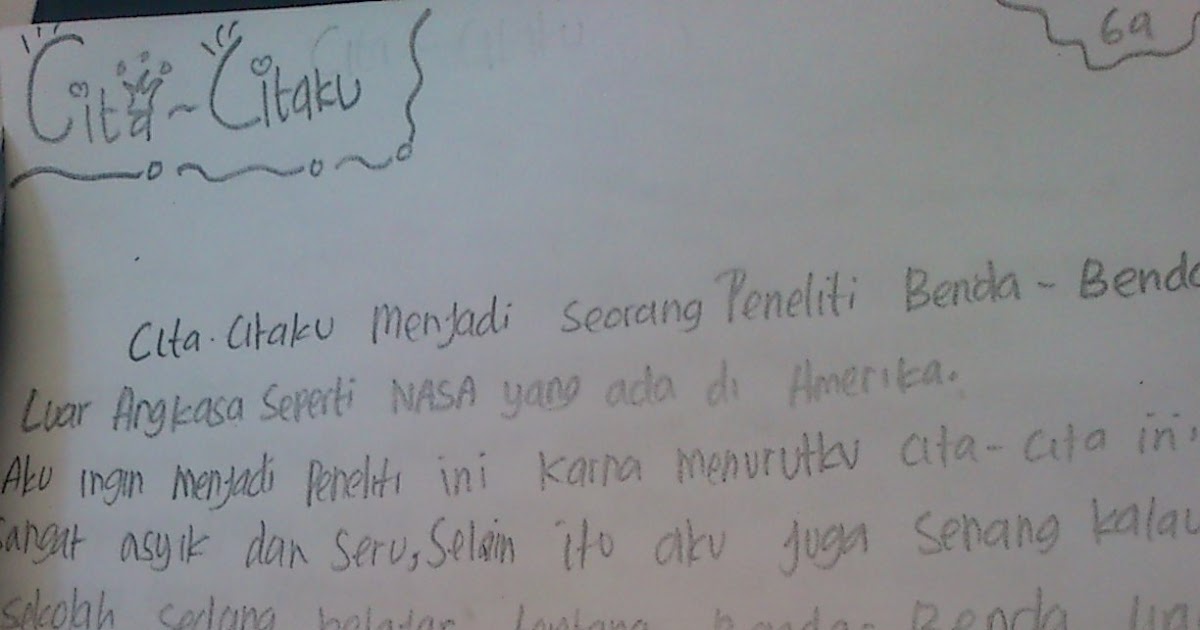 Cita~Citaku
6a
Cita-Citaku Menjadi Seorang Peneliti Benda - Benda
Luar Angkasa Seperti NASA yang ada di Amerika.
Aku ingin menjadi Peneliti ini karna menurutku cita-cita ini
sangat asyik dan seru, Selain itu aku juga senang kalau
sekolah sedang belajar tentang Benda- Benda lua